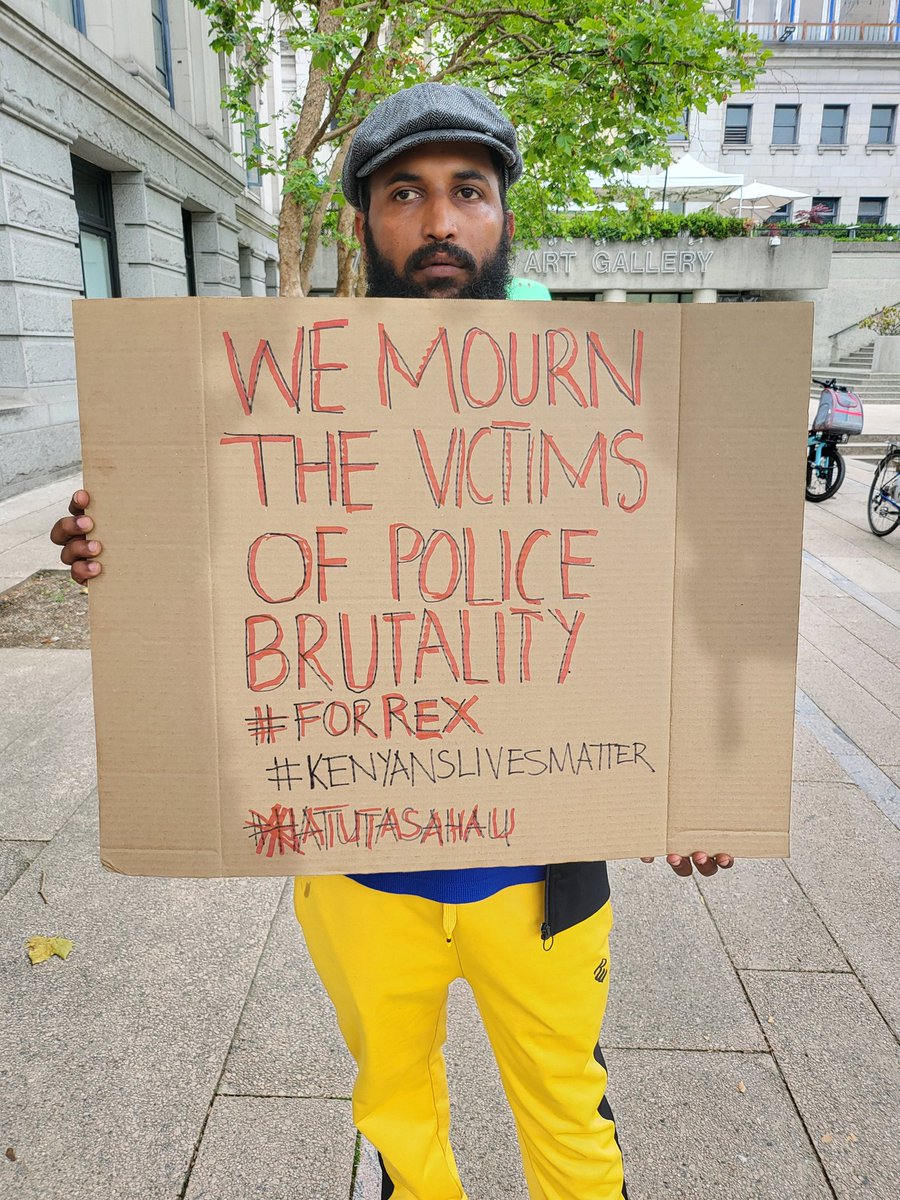 ART GALLERY
WE MOURN
THE VICTIMS
OF POLICE
BRUTALITY
#FORREX
#KENYANSLIVESMATTER
#HATUTASAHAU